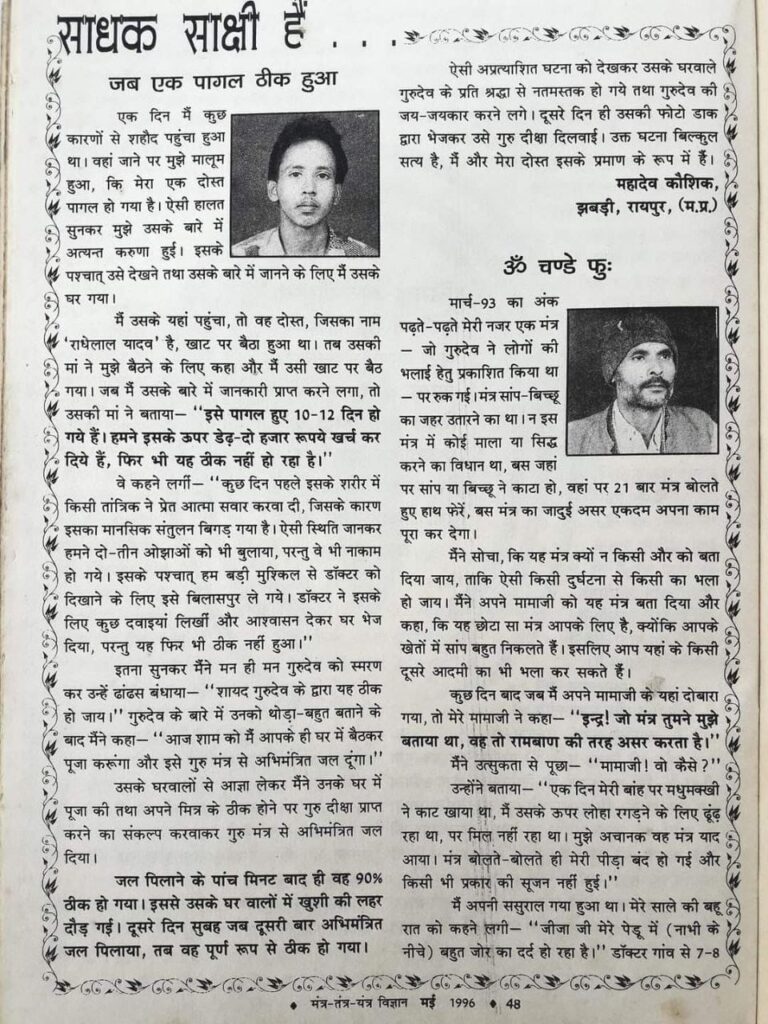 साधक साक्षी हैं . . .
जब एक पागल ठीक हुआ
एक दिन मैं कुछ
कारणों से शहौद पहुंचा हुआ
था। वहां जाने पर मुझे मालूम
हुआ, कि मेरा एक दोस्त
पागल हो गया है। ऐसी हालत
सुनकर मुझे उसके बारे में
अत्यन्त करुणा हुई। इसके
पश्चात् उसे देखने तथा उसके बारे में जानने के लिए मैं उसके
घर गया।
मैं उसके यहां पहुंचा, तो वह दोस्त, जिसका नाम
‘राधेलाल यादव’ है, खाट पर बैठा हुआ था। तब उसकी
मां ने मुझे बैठने के लिए कहा और मैं उसी खाट पर बैठ
गया। जब मैं उसके बारे में जानकारी प्राप्त करने लगा, तो
उसकी मां ने बताया— ‘‘इसे पागल हुए 10-12 दिन हो
गये हैं। हमने इसके ऊपर डेढ़-दो हजार रूपये खर्च कर
दिये हैं, फिर भी यह ठीक नहीं हो रहा है।’’
वे कहने लगीं— ‘‘कुछ दिन पहले इसके शरीर में
किसी तांत्रिक ने प्रेत आत्मा सवार करवा दी, जिसके कारण
इसका मानसिक संतुलन बिगड़ गया है। ऐसी स्थिति जानकर
हमने दो-तीन ओझाओं को भी बुलाया, परन्तु वे भी नाकाम
हो गये। इसके पश्चात् हम बड़ी मुश्किल से डॉक्टर को
दिखाने के लिए इसे बिलासपुर ले गये। डॉक्टर ने इसके
लिए कुछ दवाइयां लिखीं और आश्वासन देकर घर भेज
दिया, परन्तु यह फिर भी ठीक नहीं हुआ।’’
इतना सुनकर मैंने मन ही मन गुरुदेव को स्मरण
कर उन्हें ढांढस बंधाया— ‘‘शायद गुरुदेव के द्वारा यह ठीक
हो जाय।’’ गुरुदेव के बारे में उनको थोड़ा-बहुत बताने के
बाद मैंने कहा— ‘‘आज शाम को मैं आपके ही घर में बैठकर
पूजा करूंगा और इसे गुरु मंत्र से अभिमंत्रित जल दूंगा।’’
उसके घरवालों से आज्ञा लेकर मैंने उनके घर में
पूजा की तथा अपने मित्र के ठीक होने पर गुरु दीक्षा प्राप्त
करने का संकल्प करवाकर गुरु मंत्र से अभिमंत्रित जल
दिया।
जल पिलाने के पांच मिनट बाद ही वह 90%
ठीक हो गया। इससे उसके घर वालों में खुशी की लहर
दौड़ गई। दूसरे दिन सुबह जब दूसरी बार अभिमंत्रित
जल पिलाया, तब वह पूर्ण रूप से ठीक हो गया।
ऐसी अप्रत्याशित घटना को देखकर उसके घरवाले
गुरुदेव के प्रति श्रद्धा से नतमस्तक हो गये तथा गुरुदेव की
जय-जयकार करने लगे। दूसरे दिन ही उसकी फोटो डाक
द्वारा भेजकर उसे गुरु दीक्षा दिलवाई। उक्त घटना बिल्कुल
सत्य है, मैं और मेरा दोस्त इसके प्रमाण के रूप में हैं।
महादेव कौशिक,
झबड़ी, रायपुर, (म.प्र.)
ॐ चण्डे फुः
मार्च-93 का अंक
पढ़ते-पढ़ते मेरी नजर एक मंत्र
— जो गुरुदेव ने लोगों की
भलाई हेतु प्रकाशित किया था
— पर रुक गई। मंत्र सांप-बिच्छू
का जहर उतारने का था। न इस
मंत्र में कोई माला या सिद्ध
करने का विधान था, बस जहां
पर सांप या बिच्छू ने काटा हो, वहां पर 21 बार मंत्र बोलते
हुए हाथ फेरें, बस मंत्र का जादुई असर एकदम अपना काम
पूरा कर देगा।
मैंने सोचा, कि यह मंत्र क्यों न किसी और को बता
दिया जाय, ताकि ऐसी किसी दुर्घटना से किसी का भला
हो जाय। मैंने अपने मामाजी को यह मंत्र बता दिया और
कहा, कि यह छोटा सा मंत्र आपके लिए है, क्योंकि आपके
खेतों में सांप बहुत निकलते हैं। इसलिए आप यहां के किसी
दूसरे आदमी का भी भला कर सकते हैं।
कुछ दिन बाद जब मैं अपने मामाजी के यहां दोबारा
गया, तो मेरे मामाजी ने कहा— ‘‘इन्द्र! जो मंत्र तुमने मुझे
बताया था, वह तो रामबाण की तरह असर करता है।’’
मैंने उत्सुकता से पूछा— ‘‘मामाजी! वो कैसे?’’
उन्होंने बताया— ‘‘एक दिन मेरी बांह पर मधुमक्खी
ने काट खाया था, मैं उसके ऊपर लोहा रगड़ने के लिए ढूंढ़
रहा था, पर मिल नहीं रहा था। मुझे अचानक वह मंत्र याद
आया। मंत्र बोलते-बोलते ही मेरी पीड़ा बंद हो गई और
किसी भी प्रकार की सूजन नहीं हुई।’’
मैं अपनी ससुराल गया हुआ था। मेरे साले की बहू
रात को कहने लगी— ‘‘जीजा जी मेरे पेडू में (नाभी के
नीचे) बहुत जोर का दर्द हो रहा है।’’ डॉक्टर गांव से 7-8
♦ मंत्र-तंत्र-यंत्र विज्ञान मई 1996 ♦ 48